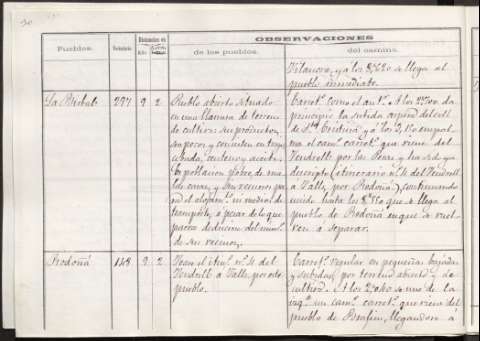 OBSERVACIONES
Pueblos.
Vecindario.
Distancias en
de los pueblos.
del camino.
Vilanova, y a los 8,620 se llega al
pueblo inmediato.
La Bisbal
297
9
2
Pueblo abierto situado
en una llanura de terreno
de cultivo: su produccion,
son pocos y consisten en trigo
cebada, centeno y aceite.
La poblacion pobre, de ma
las casas, y sin recursos pa
ra el alojamto. ni medios de
transporte, a pesar de lo que
parece deducirse del numo.
de sus vecinos.
Carreto. como el antr. A los
principia la subida
de Sta. Cristina, y a los
ma el camo. carreto. que viene del
Vendrell por las Peras y ha sido ya
descripto (itinerario no. 4 del Vendrell
a Valls, por Rodoña), continuando
unido hasta los que se llega al
pueblo de Rodoña en que se vuel
ven a separar.
Rodoñá
148
9
2
Vease el itino. no. 4 del
Vendrell a Valls, por este
pueblo.
Carreto. regular en pequeñas bajadas
y subidas, por terreno abierto y de
cultivo. A los 2,060 se une de la
izqa. un camo. carreto. que viene del
pueblo de Brafim, llegandose á